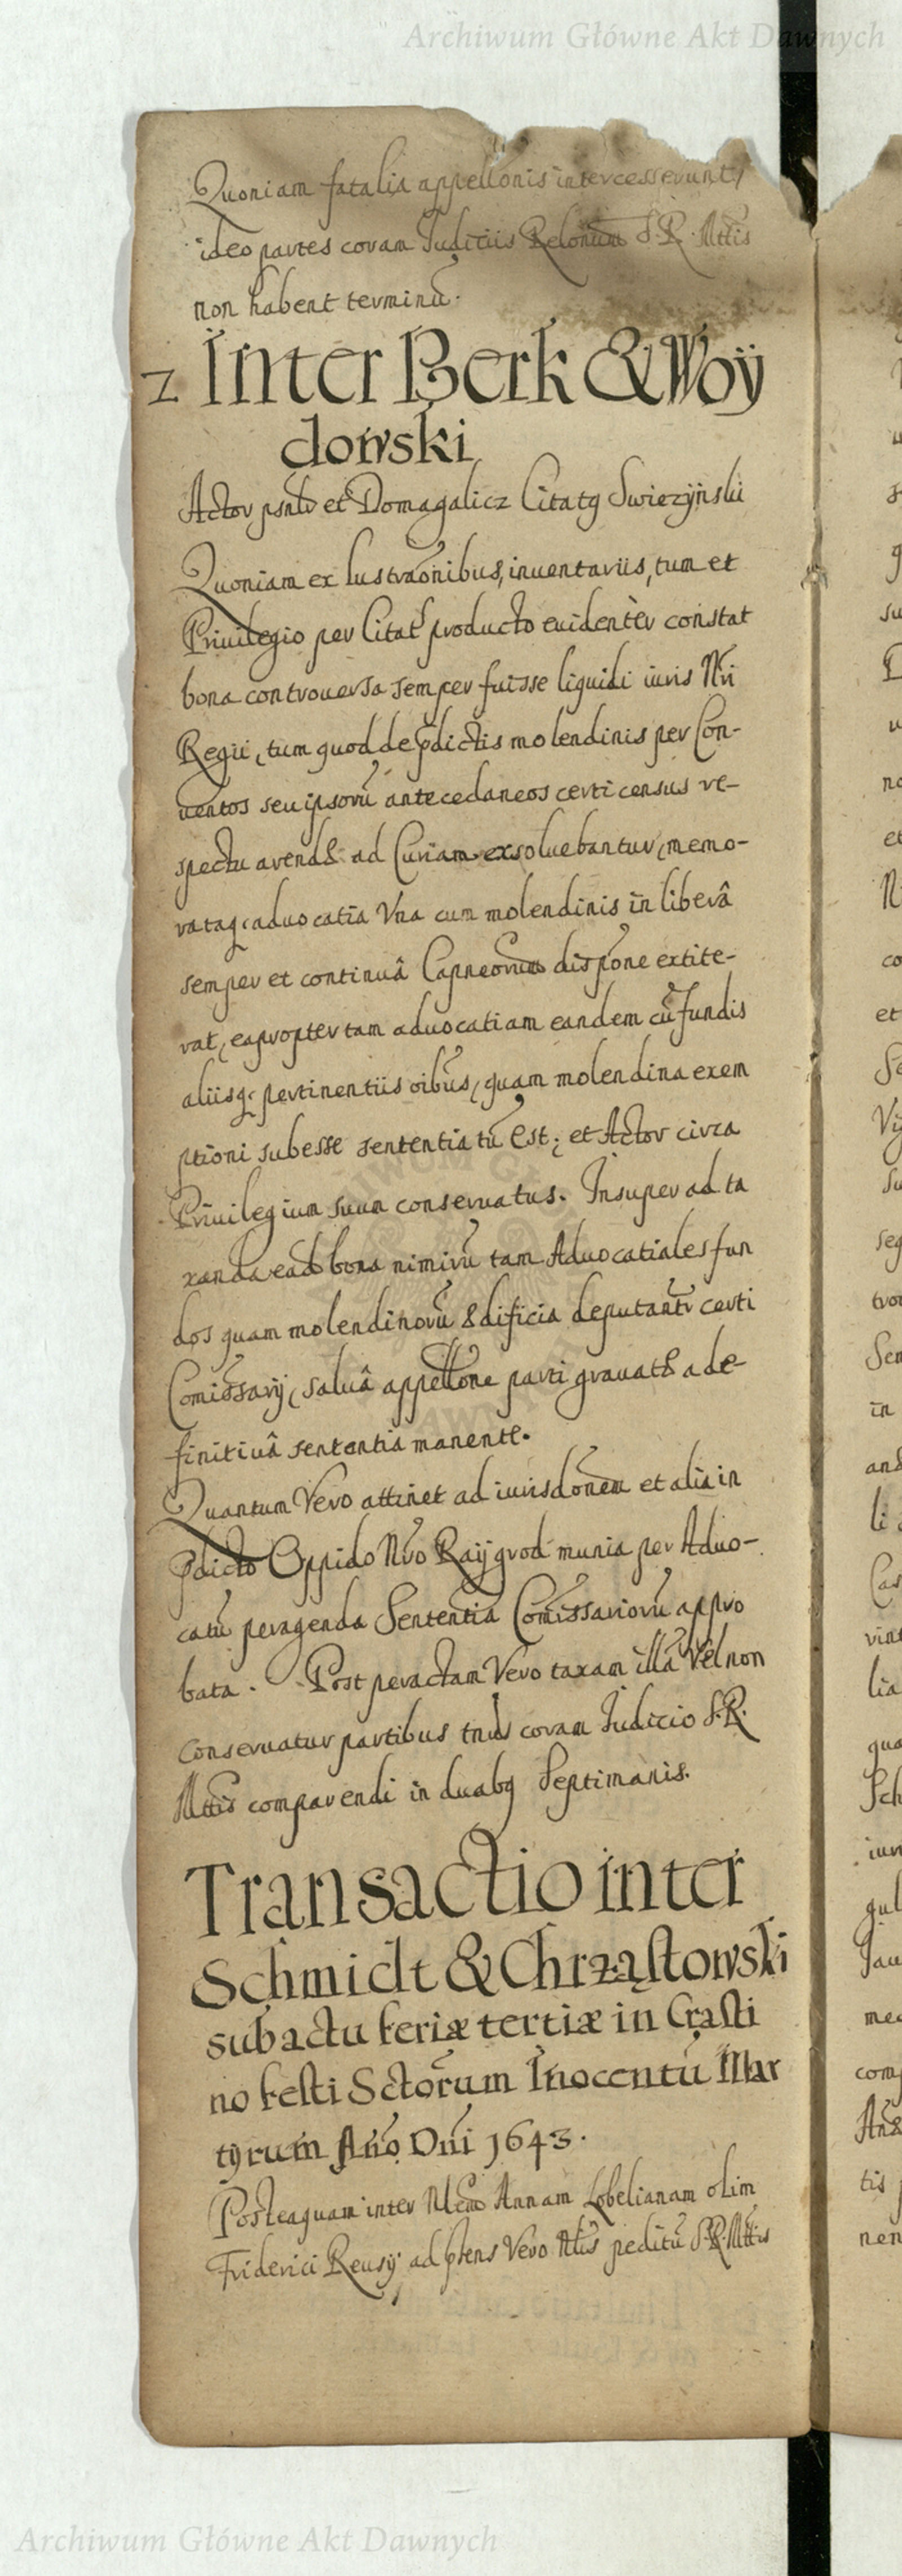 Archiwum Główne Akt Dawnych
Quoniam fatalia appellõnis intercesserunt,
ideo partes coram Judiciis Relõnum S. R. Mttis
non habent terminũ.
2 Inter Berk & Woÿ
dowski
Actor psnlr et Domagalicz Citatq Swiezÿnski
Quoniam ex lustraõnibus, inuentariis, tum et
Priuilegio per Citat producto euidentèr constat
bona controuersa semper fuisse liquidi iuris Nri
Regii, tum quod de pdictis molendinis per Con-
uentos seu ipsorũ antecedaneos certi census re-
spectu arendæ ad Curiam exsoluebantur, memo-
rataq; aduocatia Vna cum molendinis in liberâ
semper et continuâ Capneorum dispõne extite-
rat, eapropter tam aduocatiam eandem cũ fundis
aliisq; pertinentiis oibus, quam molendina exem
ptioni subesse sententiatũ est; et Actor circa
Priuilegium suum conseruatus. Insuper ad ta
xanda ead bona nimirũ tam Aduocatiales fun
dos quam molendinorũ ædificia deputantr certi
Comissarÿ, saluâ appellone parti grauatæ a de-
finitiuâ sententia manente.
Quantum Vero attinet ad iurisdõnem et alia in
pdicto Oppido Nro Raÿgrod munia per Aduo-
catũ peragenda Sententia Comissariorũ appro
bata. Post peractam Vero taxam illã Vel non
conseruatur partibus tnus coram Judicio S. R.
Mttis comparendi in duabq Septimanis.
Transactio inter
Schmidt & Chrząstowski
sub actu feriæ tertiæ in Crasti
no festi Sctorum Inocentũ Mar
tÿrum Año Dni 1643.
Posteaquam inter Annam Lobelianam olim
Friderici Reusÿ ad pſens Vero peditũ S. R. Mttis
Archiwum Główne Akt Dawnych